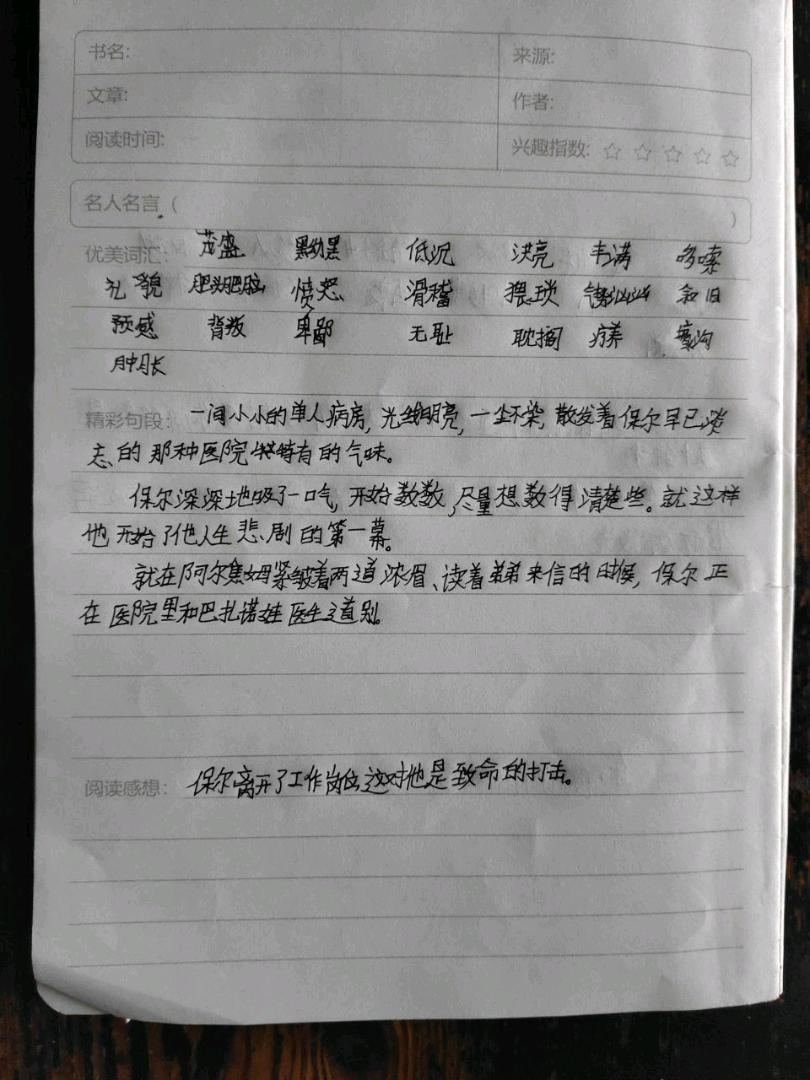 书名: 来源:
文章: 作者:
阅读时间: 兴趣指数: ☆ ☆ ☆ ☆ ☆
名人名言 ( )
优美词汇: 茂盛 黑黝黝 低沉 洪亮 丰满 哆嗦
礼貌 肥头肥脑 愤怒 滑稽 猥琐 气势汹汹 叙旧
预感 背叛 卑鄙 无耻 耽搁 疗养 壕沟
肿胀
精彩句段: 一间小小的单人病房,光线明亮,一尘不染,散发着保尔早已淡
忘的那种医院特有的气味。
保尔深深地吸了一口气,开始数数,尽量想数得清楚些。就这样
他开始了他人生悲剧的第一幕。
就在阿尔焦姆紧皱着两道浓眉、读着弟弟来信的时候,保尔正
在医院里和巴扎诺娃医生道别。
阅读感想: 保尔离开了工作岗位这对他是致命的打击。